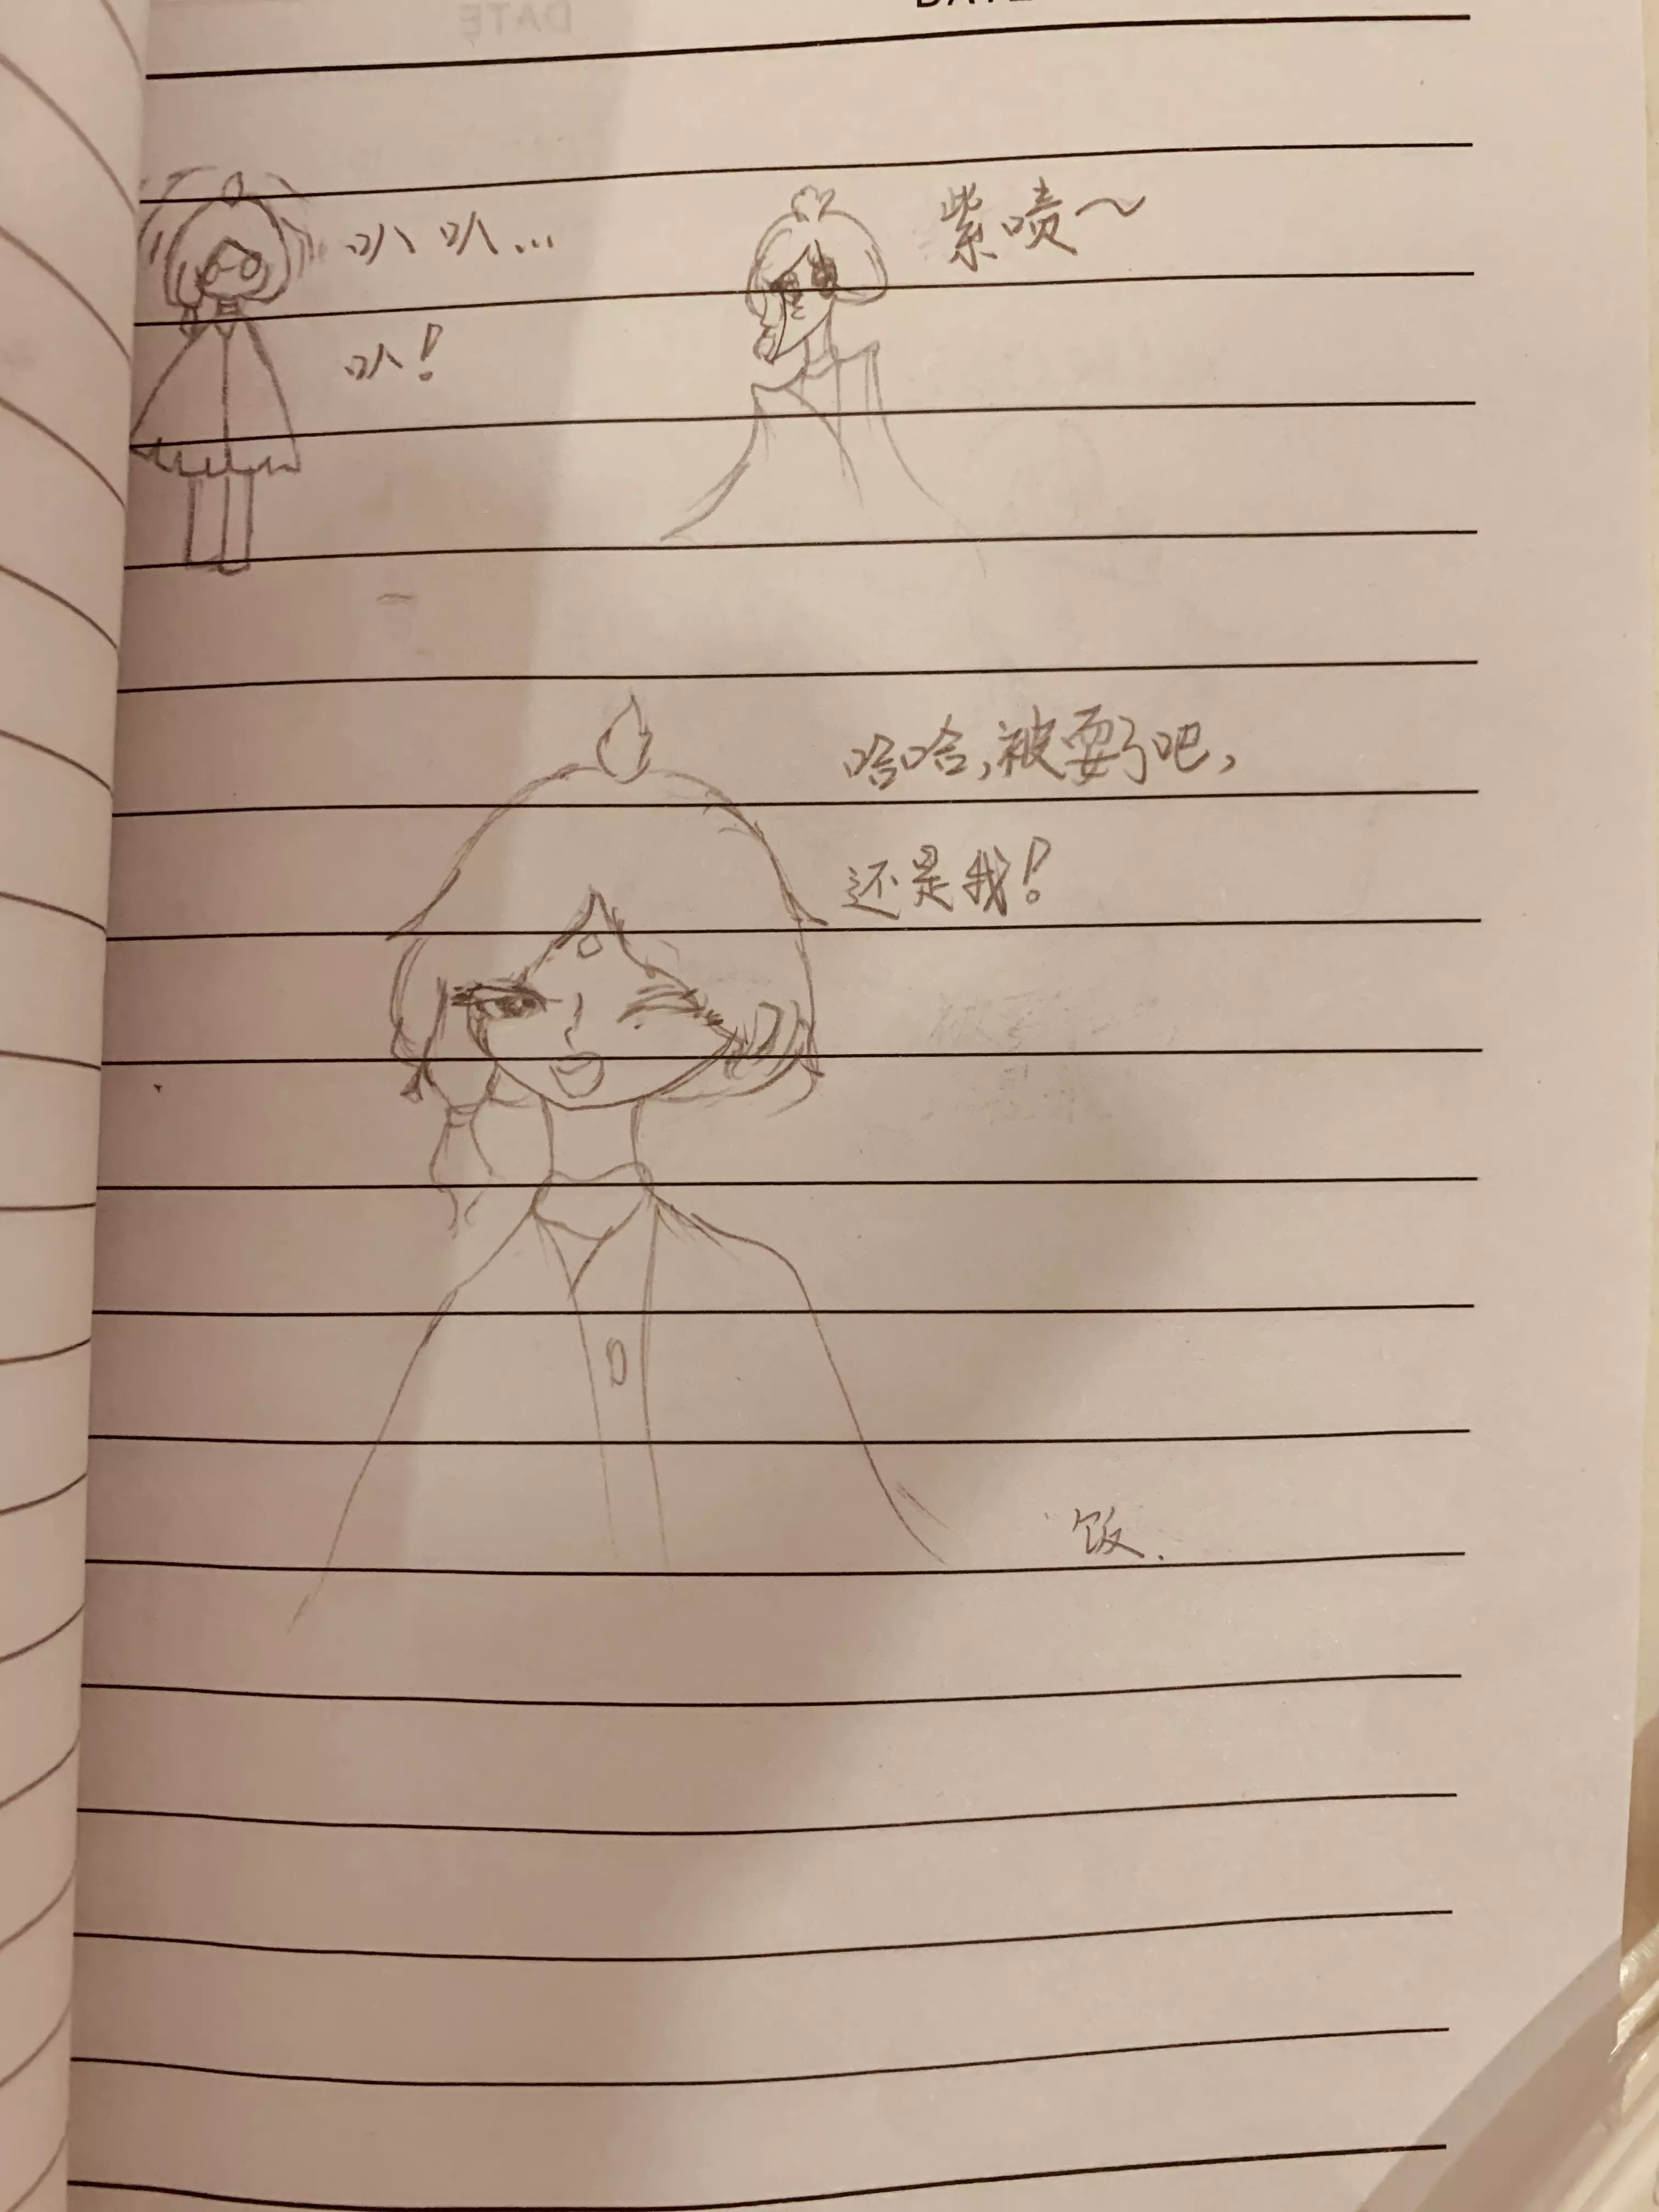 DATE
叭 叭…
叭！
紫啧～
哈哈,被耍了吧,
还是我！
饭.